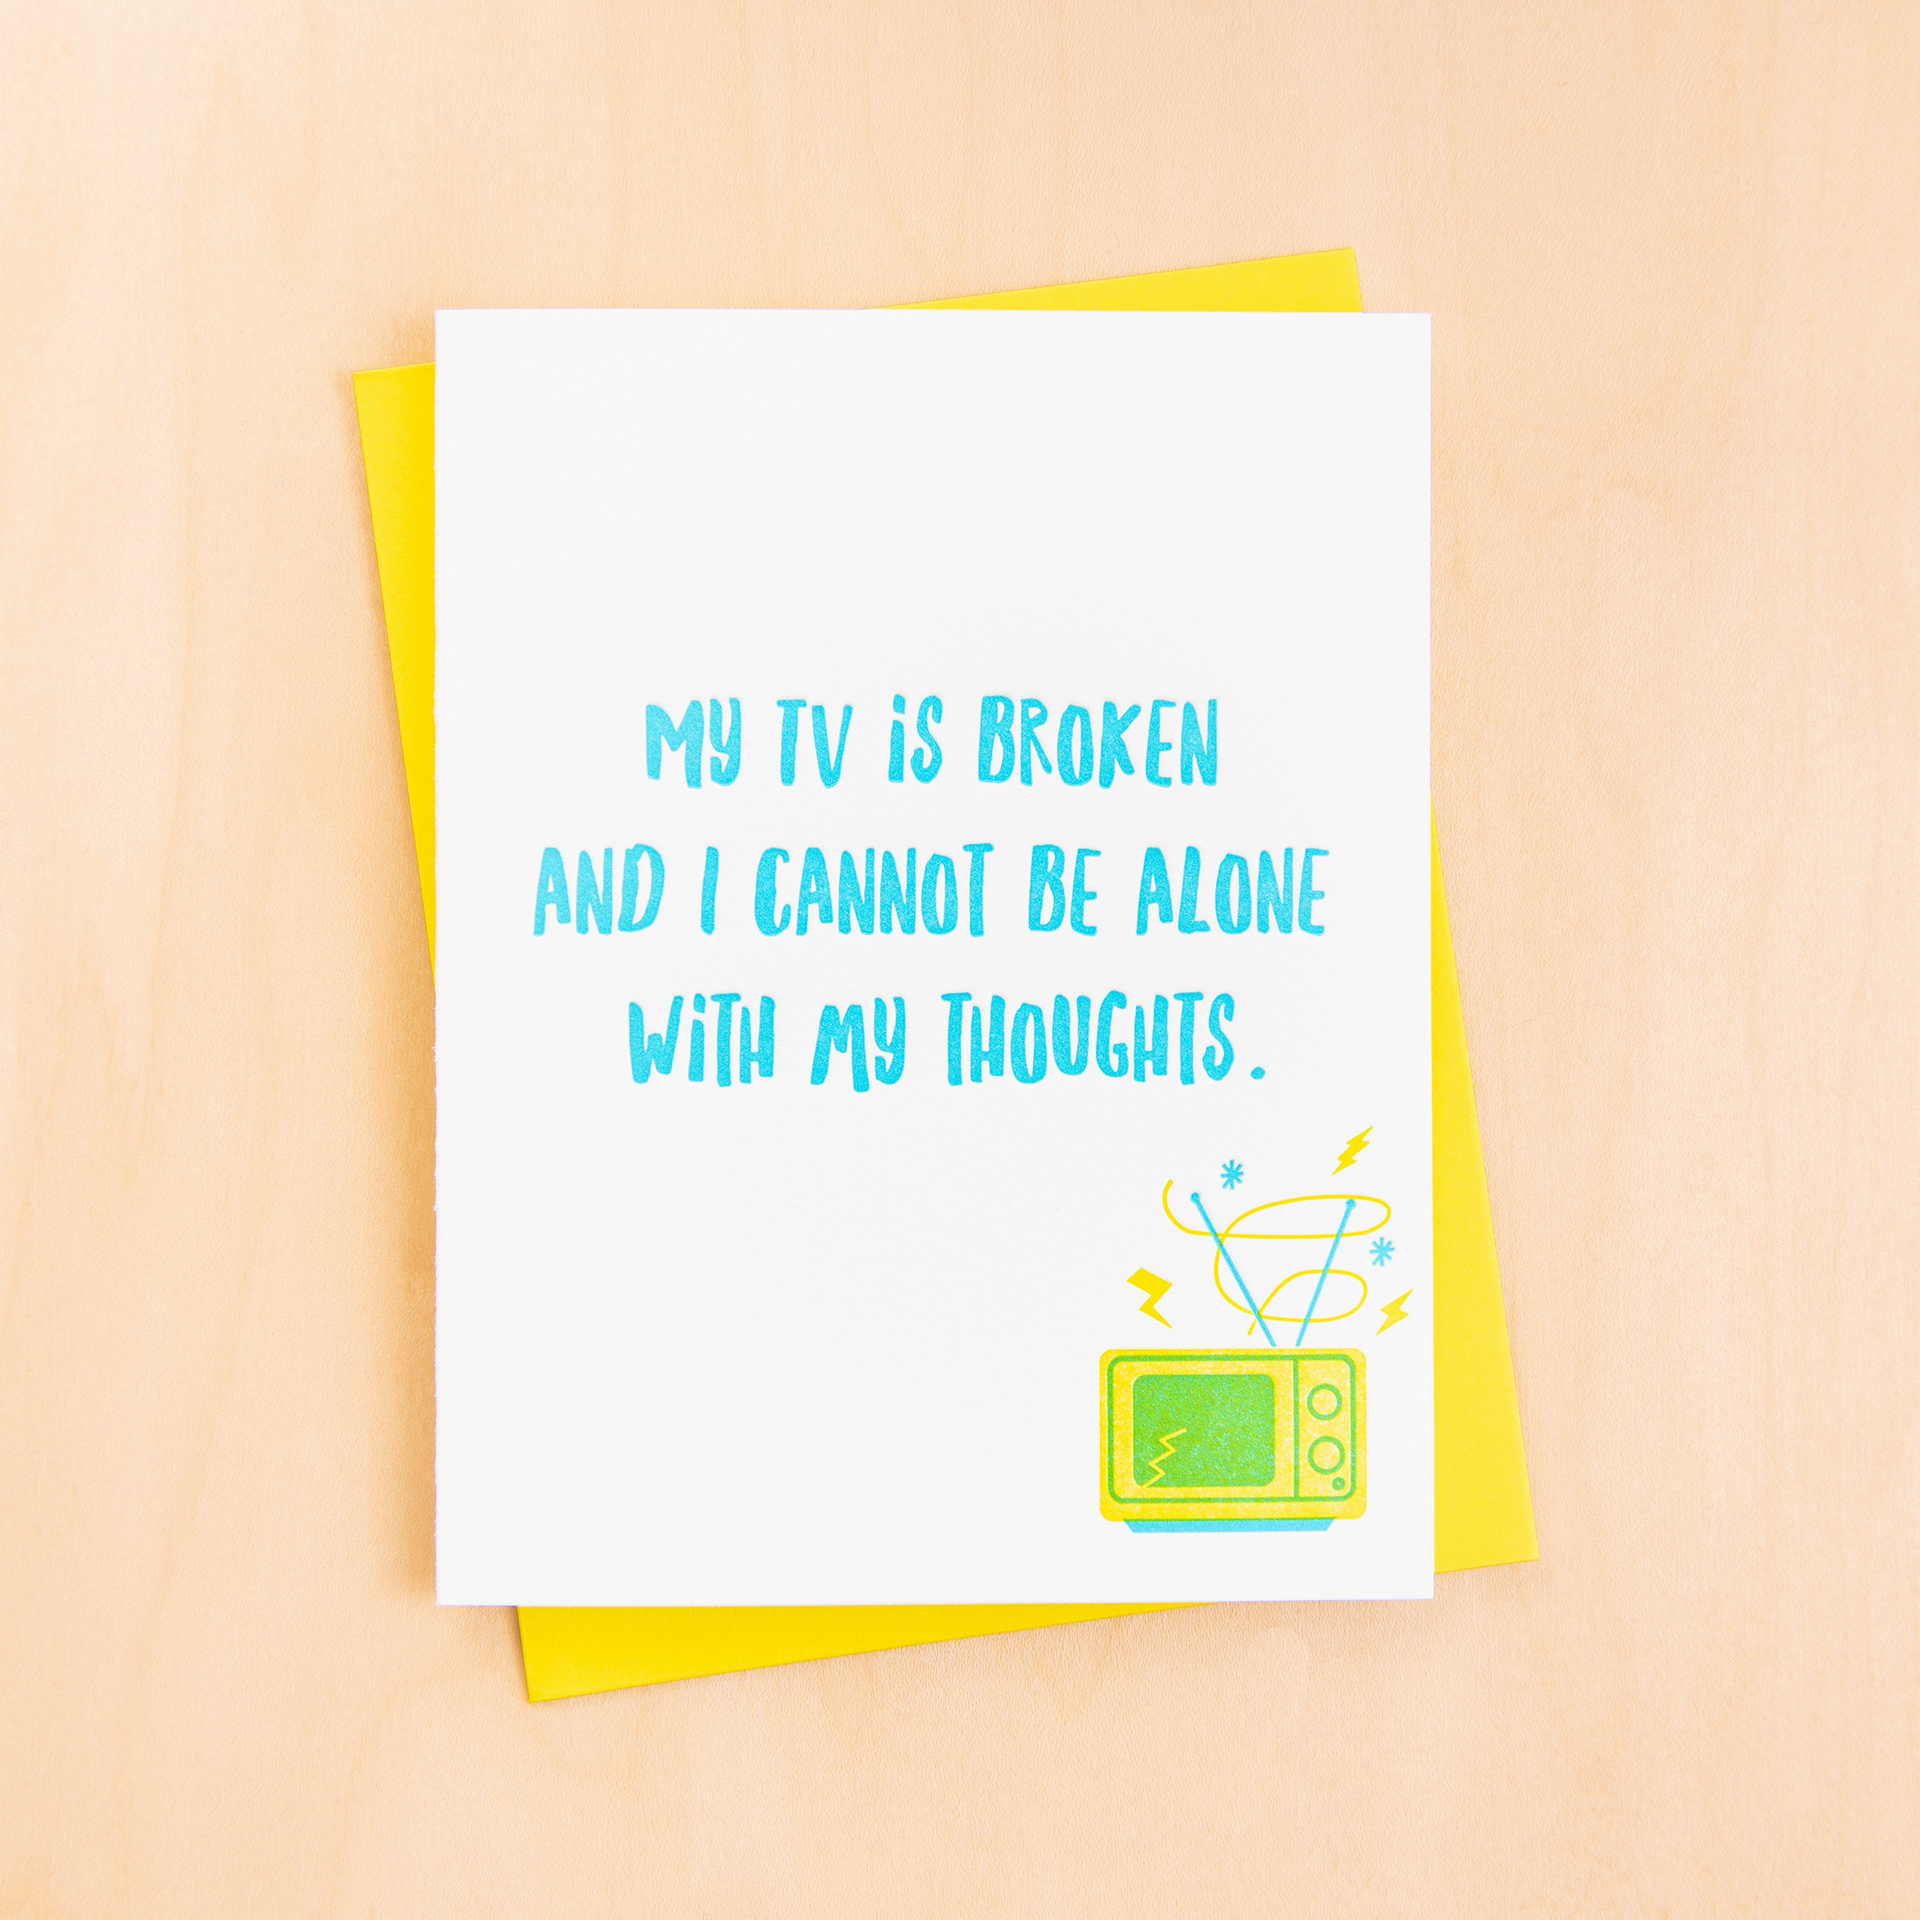 MY TV iS BROKEN
AND I CANNOT BE ALONE
WiTH MY THOUGHTS.